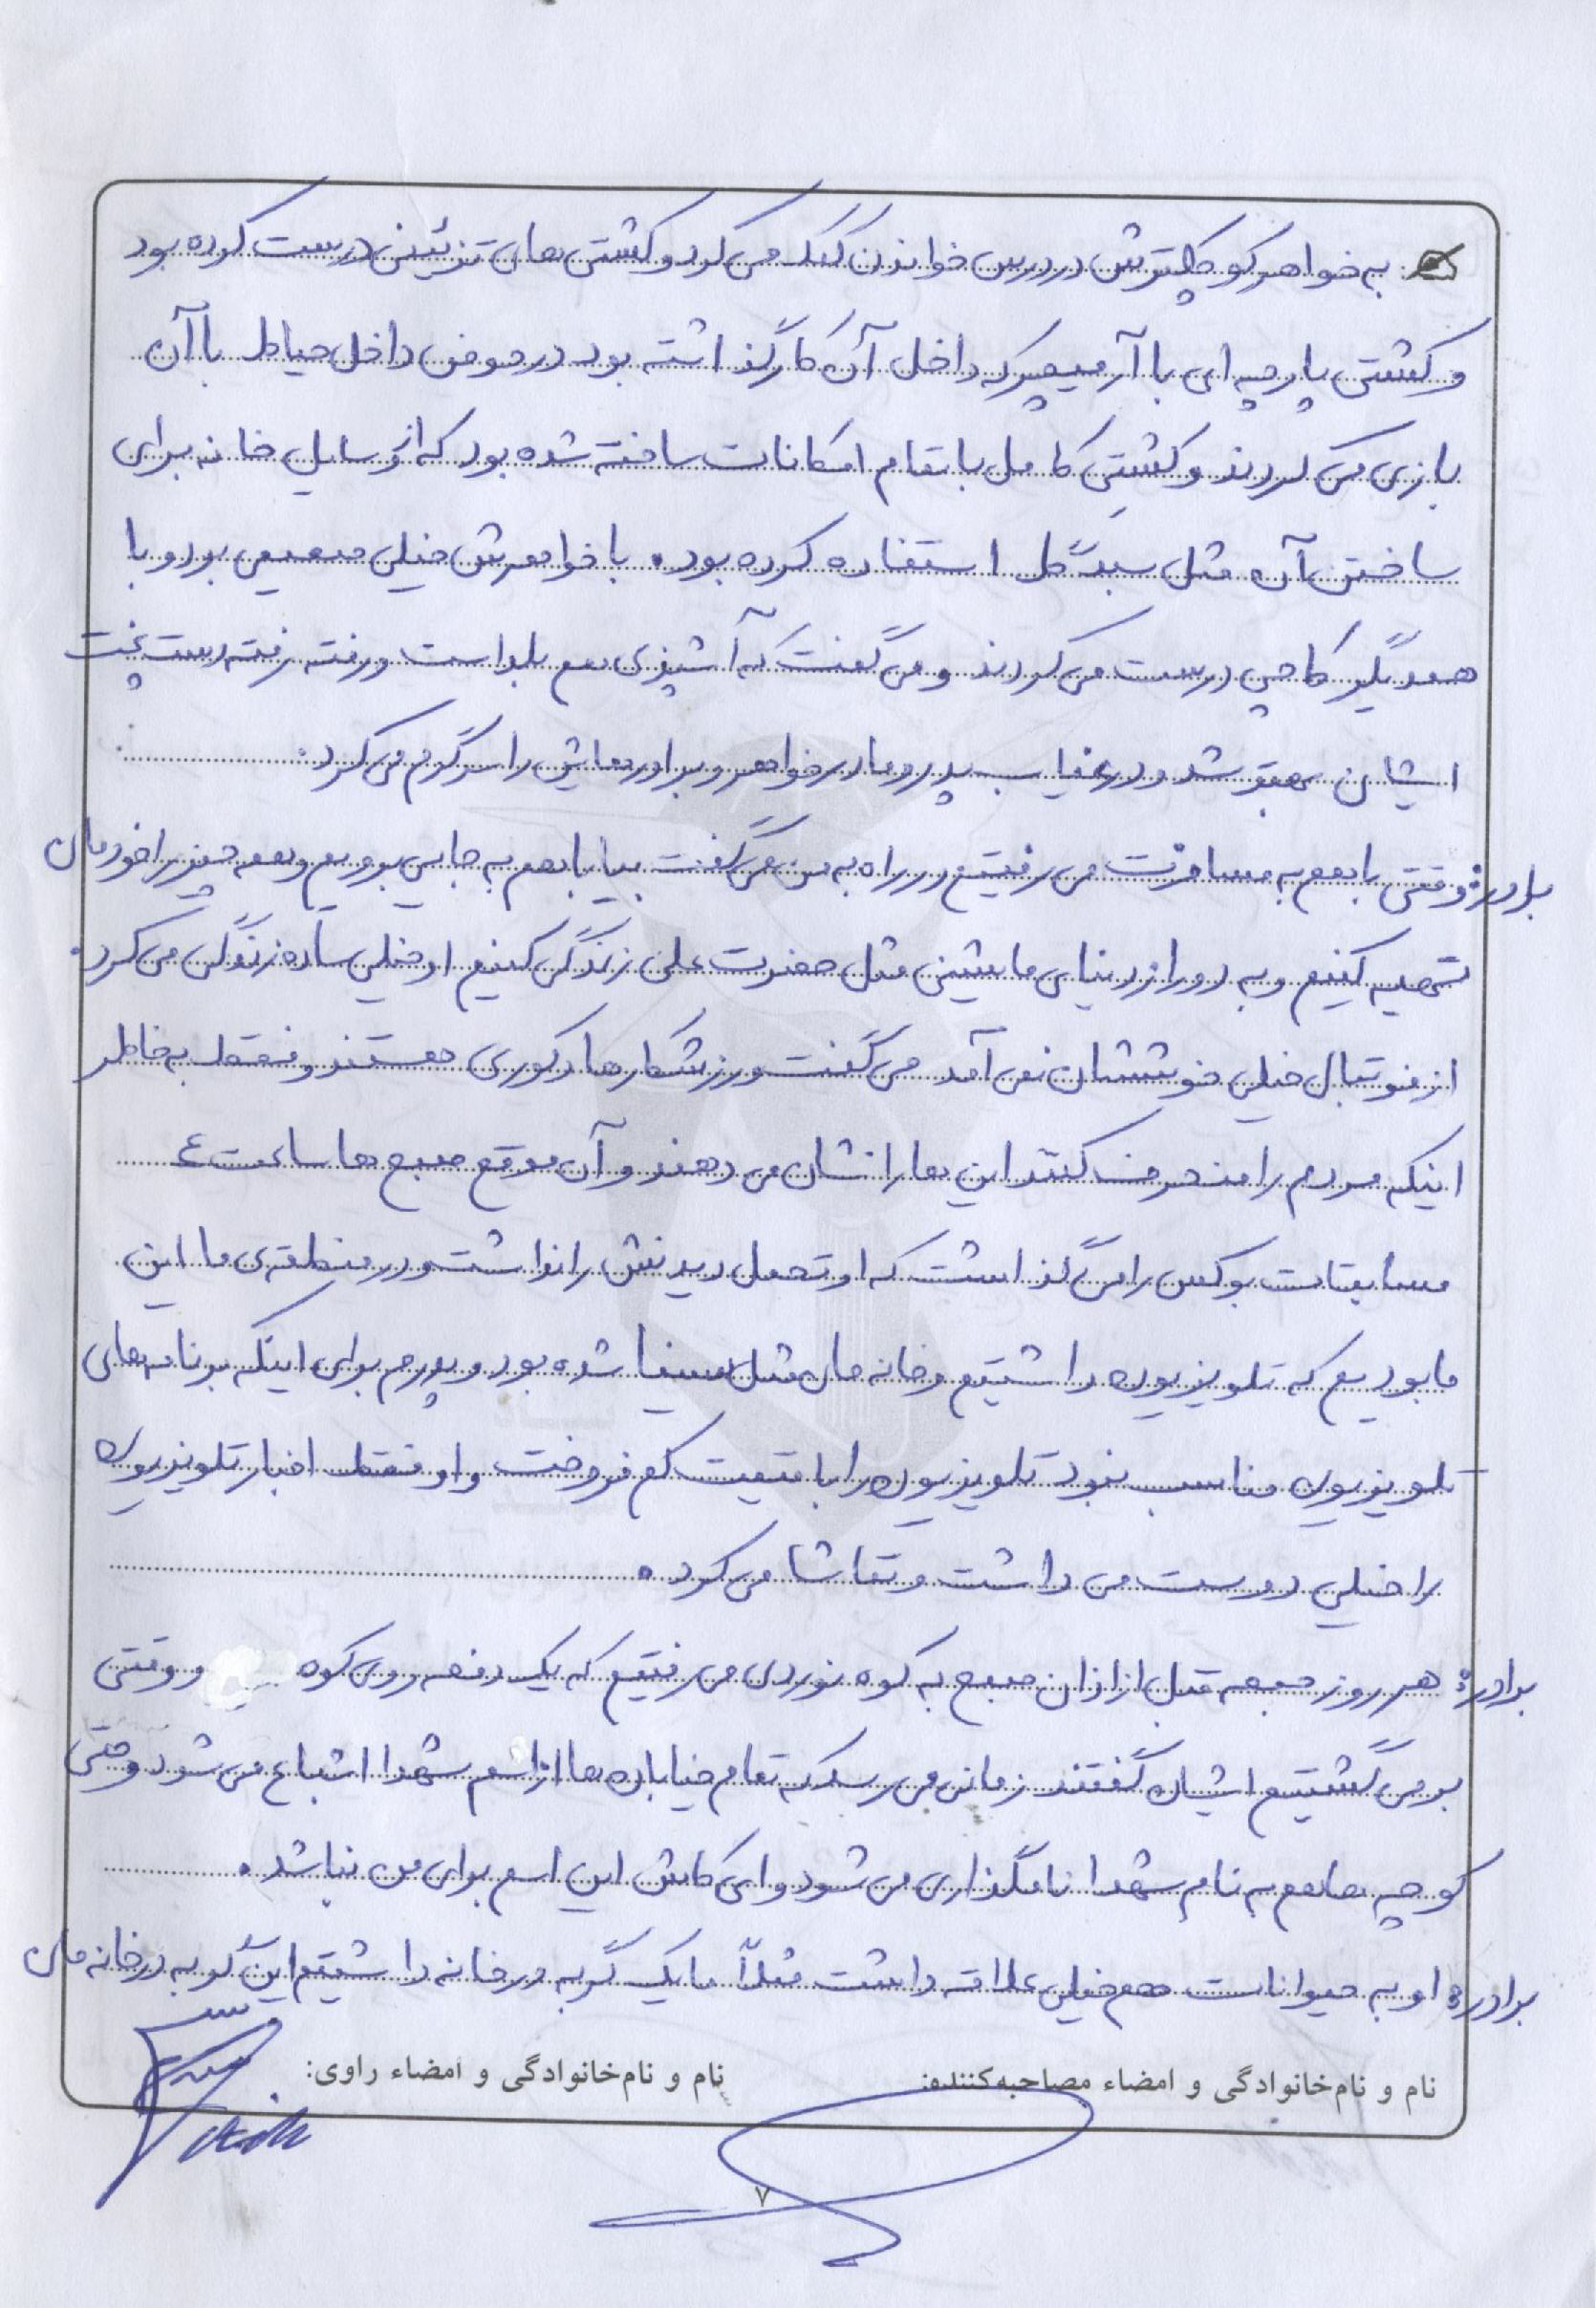 به خواهر کوچکترش در درس خواندن کمک می کرد و کشتی های تزئینی درست کرده بود
و کشتی پارچه ای با آرمیچر که داخل آن کار گذاشته بود در حوض داخل حیاط با آن
بازی می کردند و کشتی کامل با تمام امکانات ساخته شده بود که از وسایل خانه برای
ساختن آن مثل سبد گل استفاده کرده بود. با خواهرش خیلی صمیمی بود و با
همدیگر کاچی درست می کردند و می گفت که آشپزی هم بلد است و رفته رفته دست پخت
ایشان بهتر شد و در غیاب پدر و مادر خواهر و برادرهایش را سرگرم می کرد.
برادر: وقتی باهم به مسافرت می رفتیم در راه به من می گفت بیا باهم به جایی برویم و همه چیز را خودمان
تهیه کنیم و به دور از دنیای ماشینی مثل حضرت علی زندگی کنیم او خیلی ساده زندگی می کرد.
از فوتبال خیلی خوششان نمی آمد می گفت ورزشکارها دکوری هستند و فقط به خاطر
اینکه مردم را منحرف کنند این ها را نشان می دهند و آن موقع صبح ها ساعت ٤
مسابقات بوکس را می گذاشت که او تحمل دیدنش را نداشت و در منطقه ی ما این
ما بودیم که تلویزیون داشتیم و خانه مان مثل سینما شده بود و پدرم برای اینکه برنامه های
تلویزیون مناسب نبود تلویزیون را با قیمت کم فروخت و او فقط اخبار تلویزیون
را خیلی دوست می داشت و تماشا می کرد.
برادر: هر روز جمعه قبل از اذان صبح به کوه نوردی می رفتیم که یک دفعه روی کوه و وقتی
برمی گشتیم ایشان گفتند زمانی می رسد که تمام خیابان ها از اسم شهدا اشباع می شود و حتی
کوچه ها هم به نام شهدا نامگذاری می شود و ای کاش این اسم برای من نباشد.
برادر: او به حیوانات هم خیلی علاقه داشت مثلاً ما یک گربه در خانه داشتیم این گربه در خانه مان
نام و نام‌خانوادگی و امضاء مصاحبه‌کننده: نام و نام‌خانوادگی و امضاء راوی:
۷